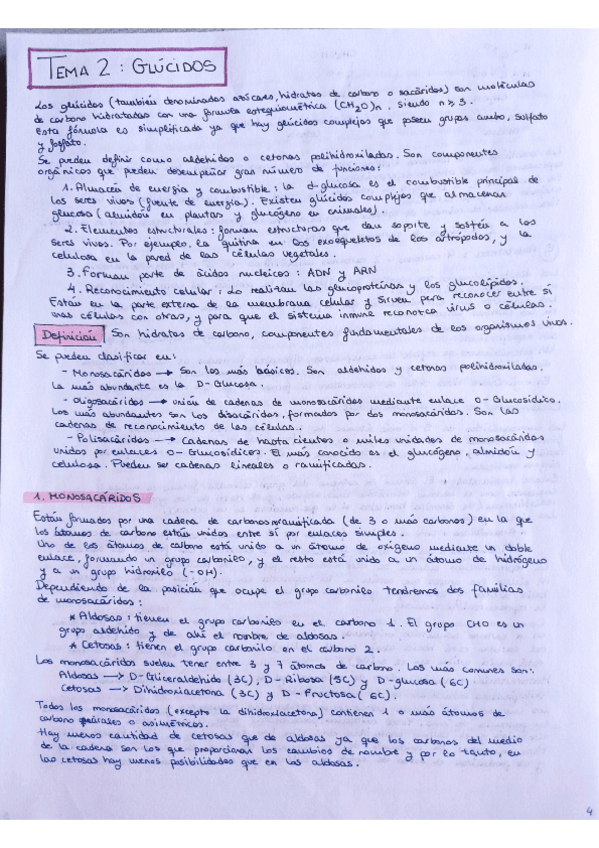 TEMA 2 : GLÚCIDOS
Los glúcidos (también denominados azúcares, hidratos de carbono o sacáridos) son moléculas
de carbono hidratadas con una fórmula estequiométrica (CH2O)n, siendo n ≥ 3.
Esta fórmula es simplificada ya que hay glúcidos complejos que poseen grupos amino, sulfato
y fosfato.
Se pueden definir como aldehídos o cetonas polihidroxiladas. Son componentes
orgánicos que pueden desempeñar gran número de funciones:
1. Almacén de energía y combustible: la d-glucosa es el combustible principal de
los seres vivos (fuente de energía). Existen glúcidos complejos que almacenan
glucosa (almidón en plantas y glucógeno en animales).
2. Elementos estructurales: forman estructuras que dan soporte y sostén a los
seres vivos. Por ejemplo, la quitina en los exoesqueletos de los artrópodos, y la
celulosa en la pared de las células vegetales.
3. Forman parte de ácidos nucleicos: ADN y ARN
4. Reconocimiento celular: Lo realizan las glucoproteínas y los glucolípidos.
Están en la parte externa de la membrana celular y sirven para reconocer entre sí
unas células con otras, y para que el sistema inmune reconozca virus o células.
Definición Son hidratos de carbono, componentes fundamentales de los organismos vivos.
Se pueden clasificar en:
- Monosacáridos → Son los más básicos. Son aldehídos y cetonas polihidroxiladas.
La más abundante es la D-Glucosa.
- Oligosacáridos → unión de cadenas de monosacáridos mediante enlace O-Glucosídico.
Los más abundantes son los disacáridos, formados por dos monosacáridos. Son las
cadenas de reconocimiento de las células.
- Polisacáridos → Cadenas de hasta cientos o miles unidades de monosacáridos
unidos por enlaces O-Glucosídicos. El más conocido es el glucógeno, almidón y
celulosa. Pueden ser cadenas lineales o ramificadas.
1. MONOSACÁRIDOS
Están formados por una cadena de carbonos ramificada (de 3 o más carbonos) en la que
los átomos de carbono están unidos entre sí por enlaces simples.
Uno de los átomos de carbono está unido a un átomo de oxígeno mediante un doble
enlace, formando un grupo carbonilo, y el resto está unido a un átomo de hidrógeno
y a un grupo hidroxilo (-OH).
Dependiendo de la posición que ocupe el grupo carbonilo tendremos dos familias
de monosacáridos:
* Aldosas: tienen el grupo carbonilo en el carbono 1. El grupo CHO es un
grupo aldehído y de ahí el nombre de aldosas.
* Cetosas: tienen el grupo carbonilo en el carbono 2.
Los monosacáridos suelen tener entre 3 y 7 átomos de carbono. Los más comunes son:
Aldosas → D-Gliceraldehído (3C), D-Ribosa (5C) y D-glucosa (6C)
Cetosas → Dihidroxiacetona (3C) y D-Fructosa (6C).
Todos los monosacáridos (excepto la dihidroxiacetona) contienen 1 o más átomos de
carbono quirales o asimétricos.
Hay menos cantidad de cetosas que de aldosas ya que los carbonos del medio
de la cadena son los que proporcionan los cambios de nombre y por lo tanto, en
las cetosas hay menos posibilidades que en las aldosas.
4